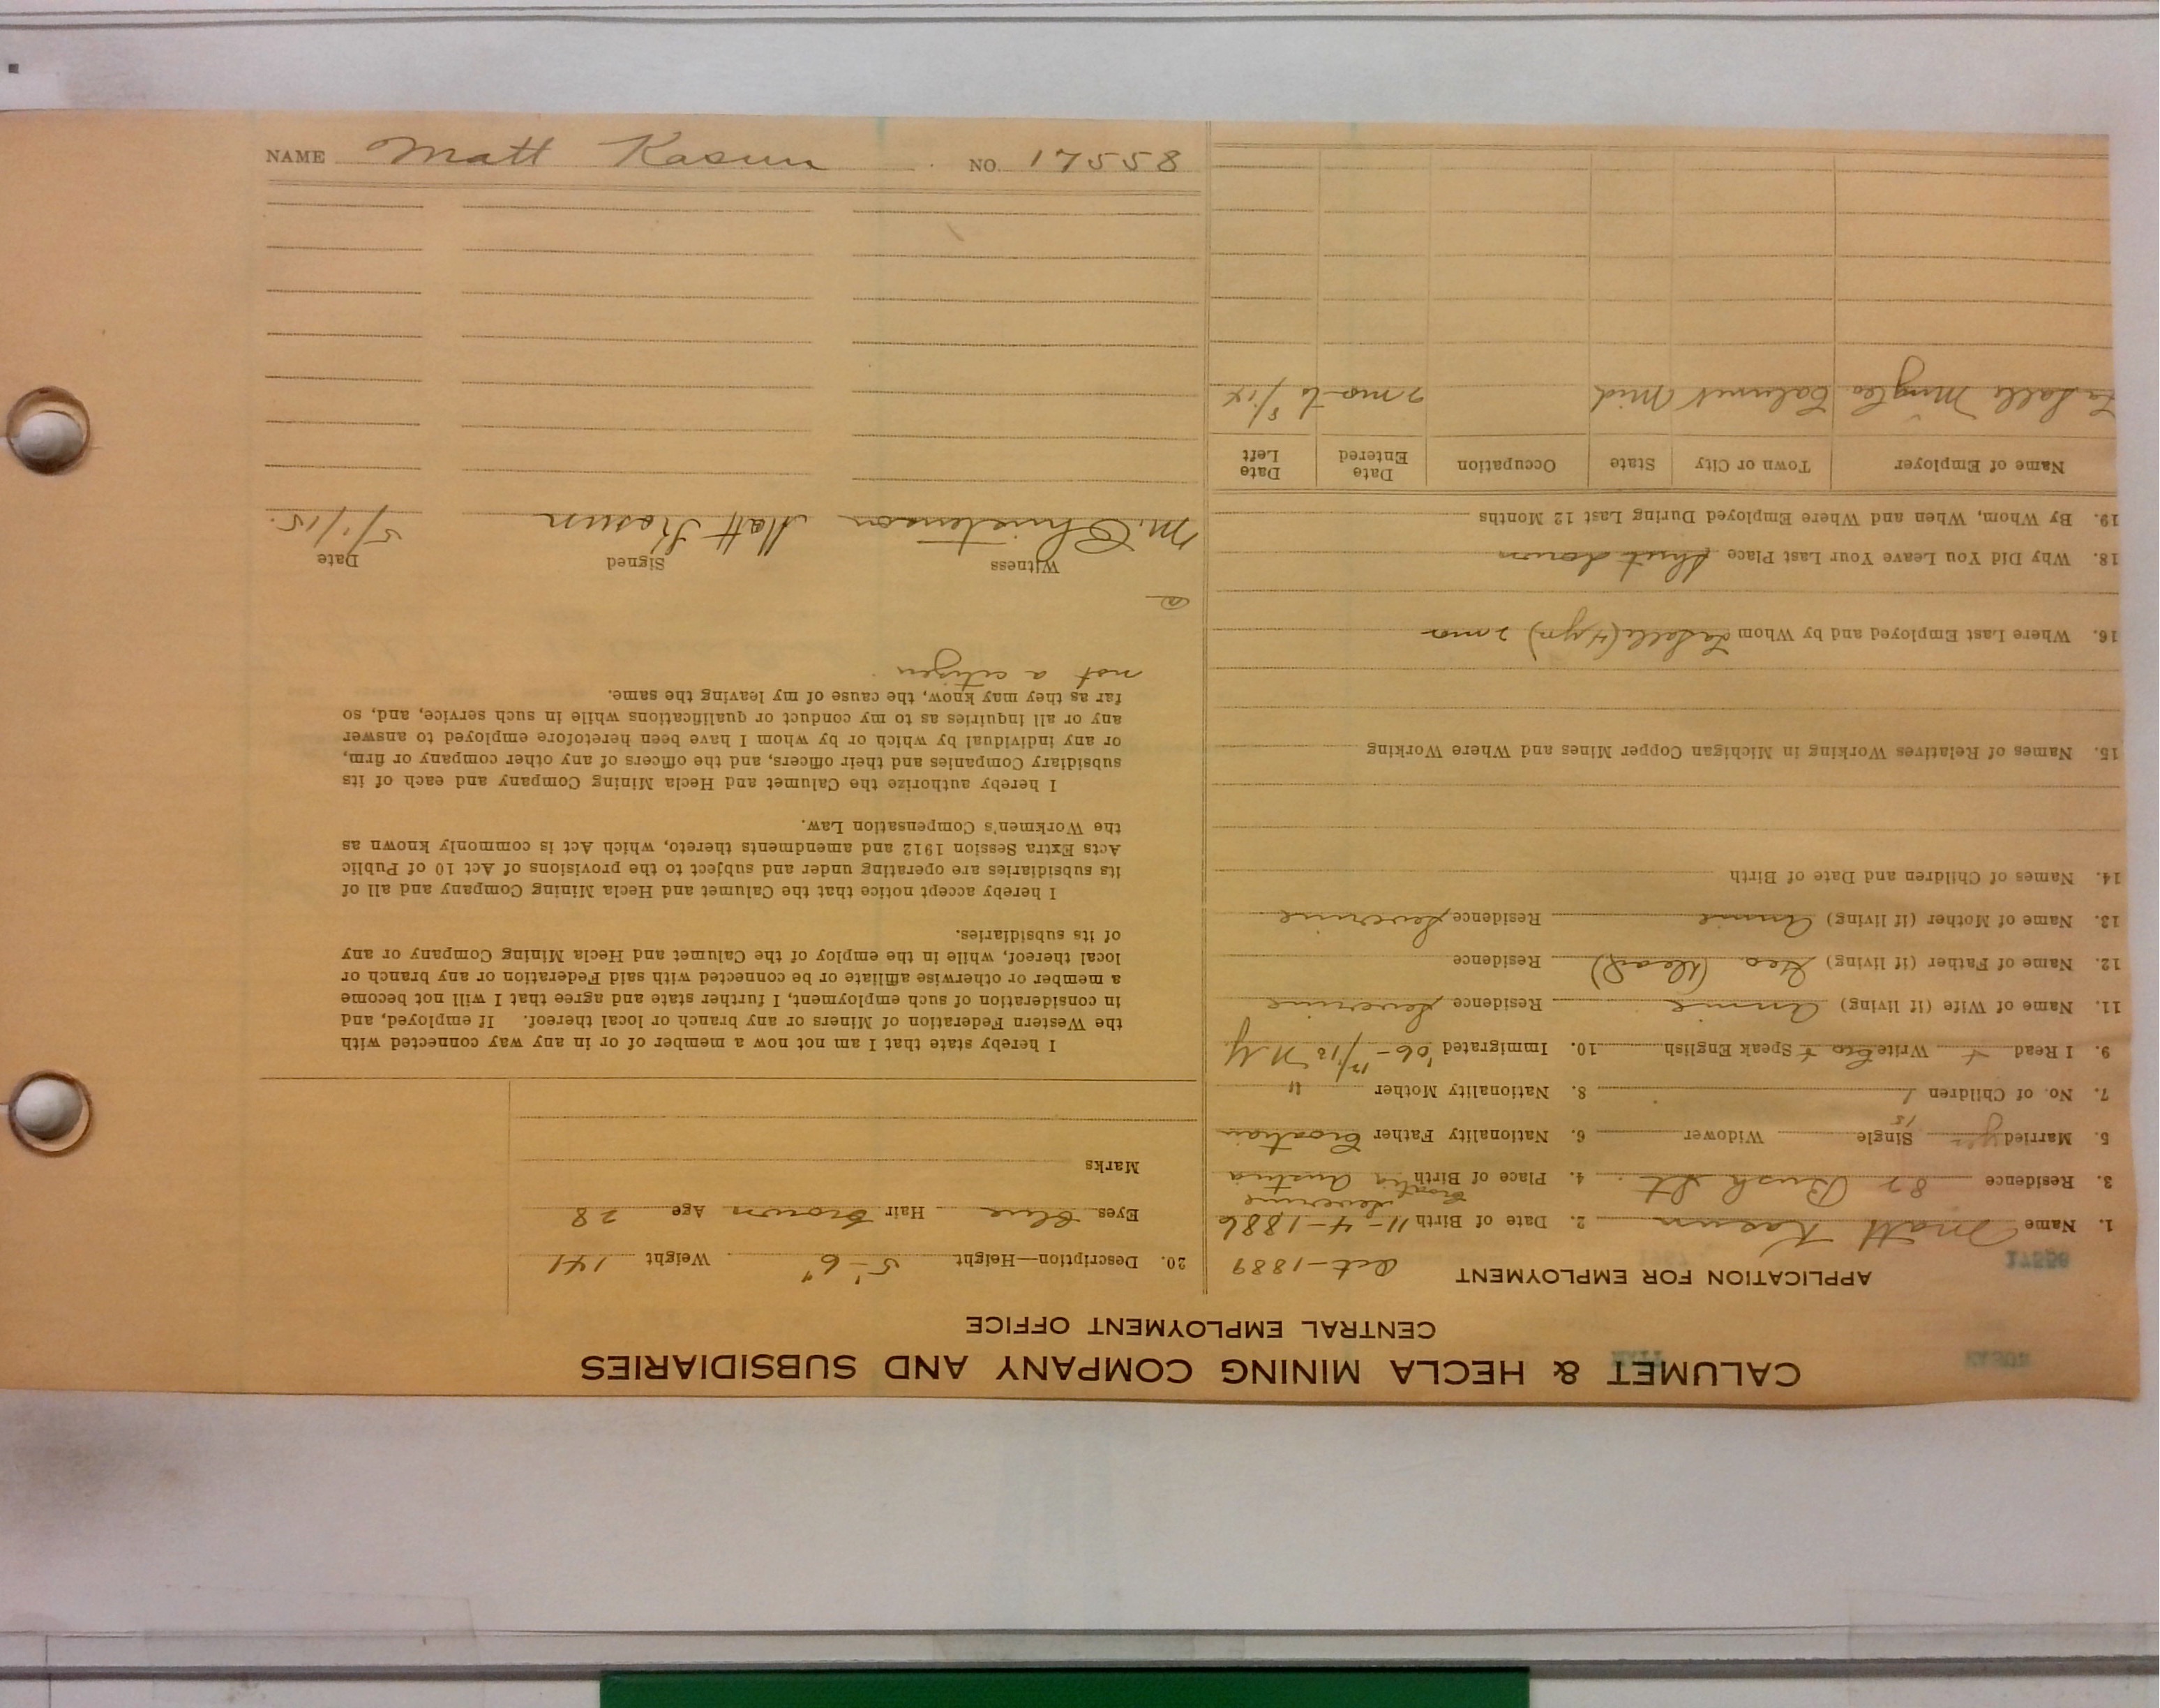 CALUMET & HECLA MINING COMPANY AND SUBSIDIARIES
CENTRAL EMPLOYMENT OFFICE
APPLICATION FOR EMPLOYMENT Oct-1889
1. Name Matt Kasun 2. Date of Birth 11-4-1886
Severine
Croatia
3. Residence 82 Bush St. 4. Place of Birth Austria
5. Married yes Single Widower 6. Nationality Father Croatian
15
7. No. of Children 1 8. Nationality Mother "
9. I Read + Write Cro + Speak English 10. Immigrated '06- 12/12 N.Y.
11. Name of Wife (if living) Annie Residence Severine
12. Name of Father (if living) Geo (Dead) Residence
13. Name of Mother (if living) Annie Residence Severine
14. Names of Children and Date of Birth
15. Names of Relatives Working in Michigan Copper Mines and Where Working
16. Where Last Employed and by Whom LaSalle (4 yrs) 2 mos
18. Why Did You Leave Your Last Place Shut down
19. By Whom, When and Where Employed During Last 12 Months
Name of Employer Town or City State Occupation Date Entered Date Left
La Salle Mng Co Calumet Mich 2 mos to 8/14
20. Description—Height 5'-6" Weight 141
Eyes Blue Hair Brown Age 28
Marks
I hereby state that I am not now a member of or in any way connected with
the Western Federation of Miners or any branch or local thereof. If employed, and
in consideration of such employment, I further state and agree that I will not become
a member or otherwise affiliate or be connected with said Federation or any branch or
local thereof, while in the employ of the Calumet and Hecla Mining Company or any
of its subsidiaries.
I hereby accept notice that the Calumet and Hecla Mining Company and all of
its subsidiaries are operating under and subject to the provisions of Act 10 of Public
Acts Extra Session 1912 and amendments thereto, which Act is commonly known as
the Workmen's Compensation Law.
I hereby authorize the Calumet and Hecla Mining Company and each of its
subsidiary Companies and their officers, and the officers of any other company or firm,
or any individual by which or by whom I have been heretofore employed to answer
any or all inquiries as to my conduct or qualifications while in such service, and, so
far as they may know, the cause of my leaving the same.
not a citizen
Witness Signed Date
M. Christenson Matt Kosun 5/1/15.
NAME Matt Kasun NO. 17558